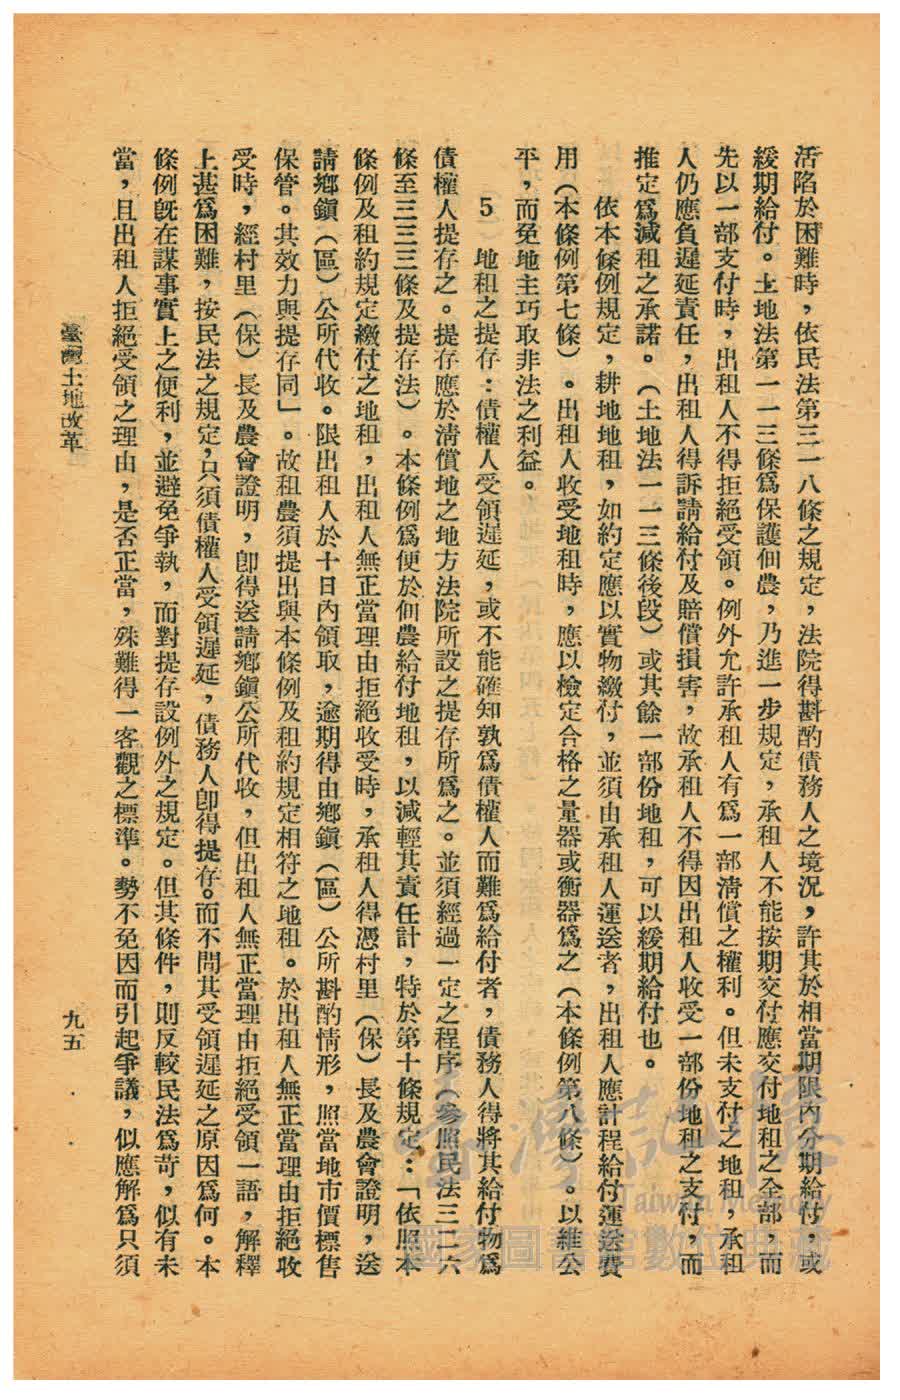 活陷於困難時，依民法第三一八條之規定，法院得斟酌債務人之境況，許其於相當期限內分期給付，或
緩期給付。土地法第一一三條爲保護佃農，乃進一步規定，承租人不能按期交付應交付地租之全部，而
先以一部支付時，出租人不得拒絕受領。例外允許承租人有爲一部清償之權利。但未支付之地租，承租
人仍應負遲延責任，出租人得訴請給付及賠償損害，故承租人不得因出租人收受一部份地租之支付，而
推定爲減租之承諾。（土地法一一三條後段）或其餘一部份地租，可以緩期給付也。
依本條例規定，耕地地租，如約定應以實物繳付，並須由承租人運送者，出租人應計程給付運送費
用（本條例第七條）。出租人收受地租時，應以檢定合格之量器或衡器爲之（本條例第八條）。以維公
平，而免地主巧取非法之利益。
5　地租之提存：債權人受領遲延，或不能確知孰爲債權人而難爲給付者，債務人得將其給付物爲
債權人提存之。提存應於清償地之地方法院所設之提存所爲之。並須經過一定之程序（參照民法三二六
條至三三三條及提存法）。本條例爲便於佃農給付地租，以減輕其責任計，特於第十條規定：「依照本
條例及租約規定繳付之地租，出租人無正當理由拒絕收受時，承租人得憑村里（保）長及農會證明，送
請鄉鎭（區）公所代收。限出租人於十日內領取，逾期得由鄉鎭（區）公所斟酌情形，照當地市價標售
保管。其效力與提存同」。故租農須提出與本條例及租約規定相符之地租。於出租人無正當理由拒絕收
受時，經村里（保）長及農會證明，卽得送請鄉鎭公所代收，但出租人無正當理由拒絕受領一語，解釋
上甚爲困難，按民法之規定，只須債權人受領遲延，債務人卽得提存。而不問其受領遲延之原因爲何。本
條例旣在謀事實上之便利，並避免爭執，而對提存設例外之規定。但其條件，則反較民法爲苛，似有未
當，且出租人拒絕受領之理由，是否正當，殊難得一客觀之標準。勢不免因而引起爭議，似應解爲只須
臺灣土地改革
九五
臺灣記憶
Taiwan Memory
國家圖書館數位典藏